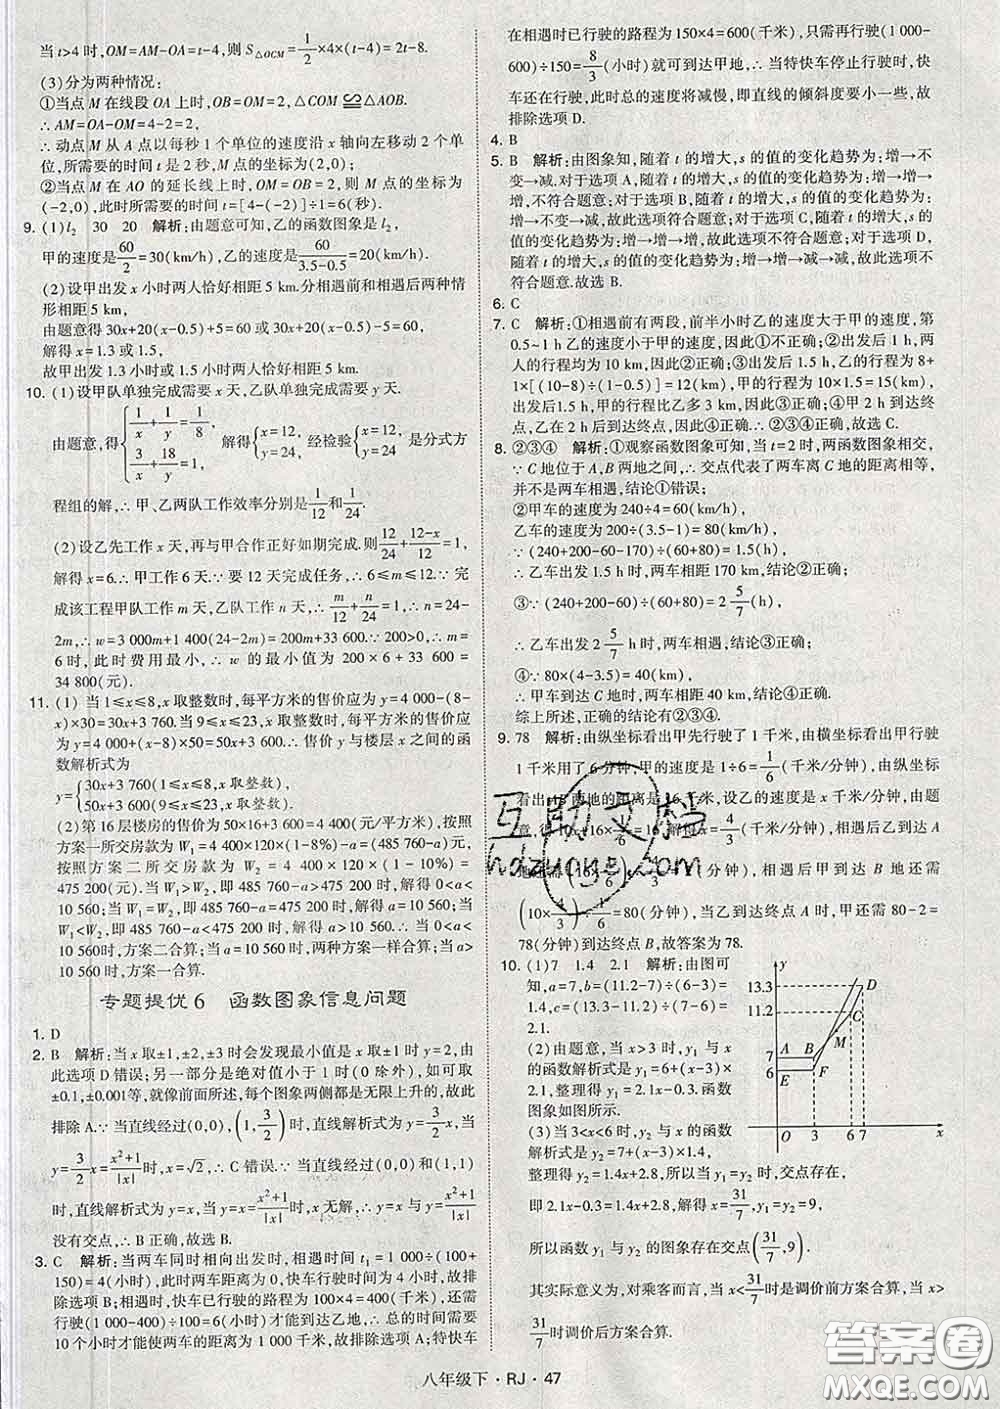 当t>4时,OM=AM-OA=t-4,则S△OCM=1/2×4×(t-4)=2t-8.
(3)分为两种情况:
①当点M在线段OA上时,OB=OM=2,△COM≌△AOB.
∴AM=OA-OM=4-2=2,
∴动点M从A点以每秒1个单位的速度沿x轴向左移动2个单
位,所需要的时间t是2秒,M点的坐标为(2,0);
②当点M在AO的延长线上时,OB=OM=2,则M点的坐标为
(-2,0),此时所需要的时间t=[4-(-2)]÷1=6(秒).
9. (1)l₂ 30 20 解析:由题意可知,乙的函数图象是l₂,
甲的速度是60/2=30(km/h),乙的速度是60/(3.5-0.5)=20(km/h).
(2)设甲出发x小时两人恰好相距5 km.分相遇前和相遇后两种情
形相距5 km,
由题意得30x+20(x-0.5)+5=60或30x+20(x-0.5)-5=60,
解得x=1.3或1.5,
故甲出发1.3小时或1.5小时两人恰好相距5 km.
10. (1)设甲队单独完成需要x天,乙队单独完成需要y天.
由题意,得{1/x+1/y=1/8, 3/x+18/y=1. 解得{x=12, y=24, 经检验{x=12, y=24 是分式方
程组的解,∴甲、乙两队工作效率分别是1/12和1/24.
(2)设乙先工作x天,再与甲合作正好如期完成.则x/24+(12-x)/12=1,
解得x=6.∴甲工作6天.∵要12天完成任务,∴6≤m≤12.∵
完成该工程甲队工作m天,乙队工作n天,∴m/12+n/24=1,∴n=24-
2m,∴w=3 000m+1 400(24-2m)=200m+33 600.∵200>0,∴m=
6时,此时费用最小,∴w的最小值为200×6+33 600=
34 800(元).
11. (1)当1≤x≤8,x取整数时,每平方米的售价应为y=4 000-(8-
x)×30=30x+3 760.当9≤x≤23,x取整数时,每平方米的售价应
为y=4 000+(x-8)×50=50x+3 600.∴售价y与楼层x之间的函
数解析式为
y={30x+3 760(1≤x≤8,x取整数), 50x+3 600(9≤x≤23,x取整数).
(2)第16层楼房的售价为50×16+3 600=4 400(元/米²),按照
方案一所交房款为W₁=4 400×120×(1-8%)-a=485 760-a(元),
按照方案二所交房款为W₂=4 400×120×(1-10%)=
475 200(元).当W₁>W₂,即485 760-a>475 200时,解得0<a<
10 560;当W₁=W₂,即485 760-a=475 200时,解得a=10 560;当
W₁<W₂,即485 760-a<475 200时,解得a>10 560.∴当0<a<
10 560时,方案二合算;当a=10 560时,两种方案一样合算;当a>
10 560时,方案一合算.
专题提优6 函数图象信息问题
1. D
2. B 解析:当x取±1,±2,±3时会发现最小值是x=±1时y=2,由
此选项D错误;另一部分是绝对值小于1时(0除外),如可取
±0.1,±0.001等,就像前面所述,每个图象两侧都是无限上升的,故
排除A.∵当直线经过(0,0),(1,3/2)时,直线解析式为y=3/2x,当
y=3/2x=(x²+1)/|x|时,x=√2,∴C错误.∵当直线经过(0,0)和(1,1)
时,直线解析式为y=x,当y=x=(x²+1)/|x|时,x无解,∴y=x与y=(x²+1)/|x|
没有交点,∴B正确.故选B.
3. C 解析:当两车同时相向出发时,相遇时间t₁=1 000÷(100+
150)=4(小时),此时两车距离为0,快车行驶时间为4小时,故排
除选项B;相遇时,慢车已行驶的路程为100×4=400(千米),还需
行驶(1 000-400)÷100=6(小时)才能到达乙地,∴总的时间需要
10个小时才能使两车的距离为1 000千米,故排除选项A;特快车
在相遇时已行驶的路程为150×4=600(千米),所以只需再行驶(1 000-
600)÷150=8/3(小时)就可到达甲地,∴当特快车停止行驶时,快
车还在行驶,此时总的速度将减慢,即直线的倾斜度要小一些,故
排除选项D.
4. B
5. B 解析:由图象知,随着t的增大,s的值的变化趋势为:增→不
变→减.对于选项A,随着t的增大,s的值的变化趋势为:增→增→
增,故选项A不符合题意;对于选项B,随着t的增大,s的值的变化
趋势为:增→不变→减,故选项B符合题意;对于选项C,随着t的
增大,s的值的变化趋势为:增→减→增,故选项C不符合题意;对于选项D,
随着t的增大,s的值的变化趋势为:增→增→减,故选项D不
符合题意.故选B.
6. C
7. C 解析:①相遇前有两段,前半小时乙的速度大于甲的速度,第
0.5~1 h乙的速度小于甲的速度,因此①不正确;②出发后1 h,两
人的行程均为10 km,因此②正确;③出发后1.5 h,乙的行程为8+
1×[(10-8)÷(1-0.5)]=12(km),甲的行程为10×1.5=
15(km),甲的行程比乙多3 km,因此③正确;④甲2 h到达终
点,乙2 h后到达终点,因此④正确.∴②③④正确.故选C.
8. ②③④ 解析:①观察函数图象可知,当t=2时,两函数图象相交,
∵C地位于A,B两地之间,∴交点代表了两车离C地的距离相等,
并不是两车相遇,结论①错误;
②甲车的速度为240÷4=60(km/h),
乙车的速度为200÷(3.5-1)=80(km/h),
∵(240+200-60-170)÷(60+80)=1.5(h),
∴乙车出发1.5 h时,两车相距170 km,结论②正确;
③∵(240+200-60)÷(60+80)=2 5/7(h),
∴乙车出发2 5/7 h时,两车相遇,结论③正确;
④∵80×(4-3.5)=40(km),
∴甲车到达C地时,两车相距40 km,结论④正确.
综上所述,正确的结论有②③④.
9. 78 解析:由纵坐标看出甲先行驶了1千米,由横坐标看出甲行驶
1千米用了6分钟,甲的速度是1÷6=1/6(千米/分钟),由纵坐标
看出AB两地的距离是16千米,设乙的速度是x千米/分钟,由题
意,得10x+16×1/6=16,解得x=4/3(千米/分钟),相遇后乙到达A
地还需(16×1/6)÷4/3=2(分钟),相遇后甲到达B地还需
(10×4/3)÷1/6=80(分钟),当乙到达终点A时,甲还需80-2=
78(分钟)到达终点B,故答案为78.
10. (1)7 1.4 2.1 解析:由图可
知,a=7,b=(11.2-7)÷(6-3)=
1.4,c=(13.3-11.2)÷(7-6)=
2.1.
(2)由题意,当x>3时,y₁与x的
函数解析式是y₁=6+(x-3)×
2.1,整理得y₁=2.1x-0.3,函数
图象如图所示.
(3)当3<x<6时,y₂与x的函数
解析式是y₂=7+(x-3)×1.4,
整理得y₂=1.4x+2.8,所以当y₁=y₂时,交点存在,
即2.1x-0.3=1.4x+2.8,解得x=31/7,y₁=y₂=9,
所以函数y₁与y₂的图象存在交点(31/7,9).
其实际意义为,对乘客而言,当x<31/7时是调价前方案合算,当x>
31/7时调价后方案合算.
y
13.3
11.2
7
6
A
B
E
F
M
C
D
O
3
6
7
x
互助文档
hdzuoye.com
八年级下·RJ·47
答案圈
MXQE.COM